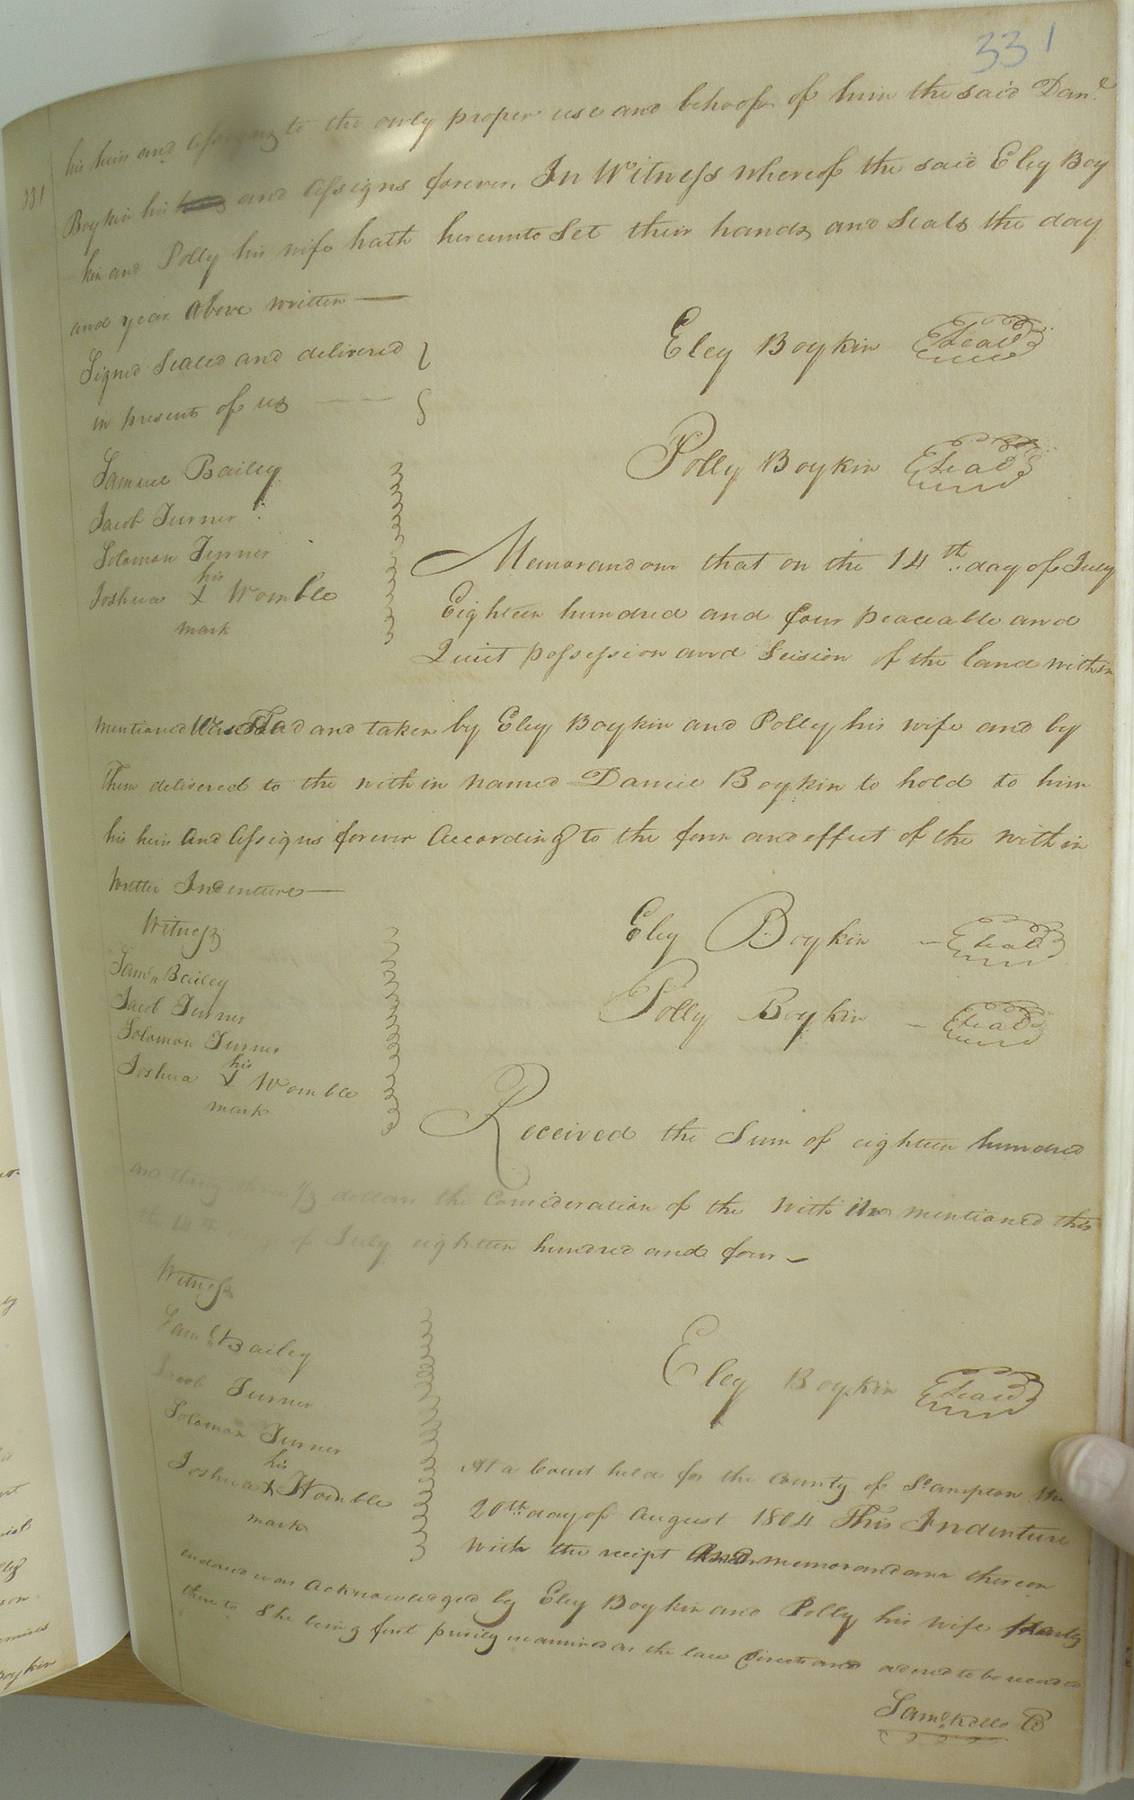 331
331
his heirs and assigns to the only proper use and behoof of him the said Danl
Boykin his and assigns forever In Witness whereof the said Eley Boy
kin and Polly his wife hath hereunto Set their hands and Seals the day
and year above written —
Signed Sealed and delivered
in presents of us —
Eley Boykin Seal
Polly Boykin Seal
Samuel Bailey
Jacob Turner
Solomon Turner
his
Joshua X Womble
mark
Memorandom that on the 14th day of July
Eighteen hundred and four peaceable and
Quiet possession and Seision of the land within
mentioned Was Had and taken by Eley Boykin and Polly his wife and by
Them delivered to the within named Daniel Boykin to hold to him
his heirs and assigns forever According to the form and effect of the within
Written Indenture —
Witness
Eley Boykin — Seal
Polly Boykin — Seal
Saml Bailey
Jacob Turner
Solomon Turner
his
Joshua X Womble
mark
Received the Sum of eighteen hundred
and thirty three 1/3 dollars the Consideration of the within mentioned this
the 14th day of July eighteen hundred and four —
Witness
Saml Bailey
Jacob Turner
Solomon Turner
his
Joshua X Womble
mark
Eley Boykin Seal
At a Court held for the County of So.ampton the
20th day of August 1804 This Indenture
with the receipt And memorandom thereon
endorsed was acknowledged by Eley Boykin and Polly his wife party
thereto She being first privily examined as the law directs and ordered to be recorded
Saml Kello C
Boykin